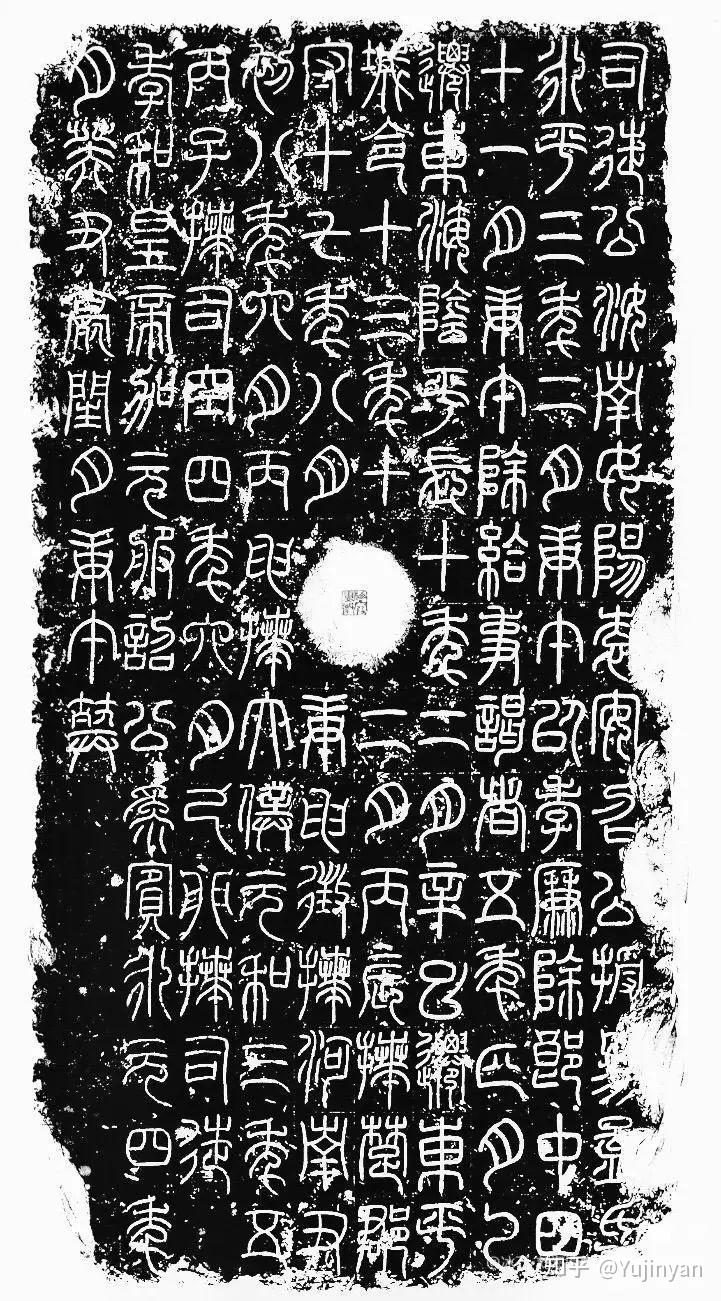 司徒公汝南女陽袁安召公授易孟氏
永平三年二月庚午以孝廉除郎中四
十一月庚午除給事謁者五年四月乙
遷東海陰平長十年二月辛巳遷東平
城令十三年十二月丙辰拜楚郡
守十七年八月庚申徵拜河南尹
初八年六月丙申拜太僕元和三年五
丙子拜司空四年六月己卯拜司徒
孝和皇帝加元服詔公為賓永元四年
月癸丑薨閏月庚午葬
知乎 @Yujinyan